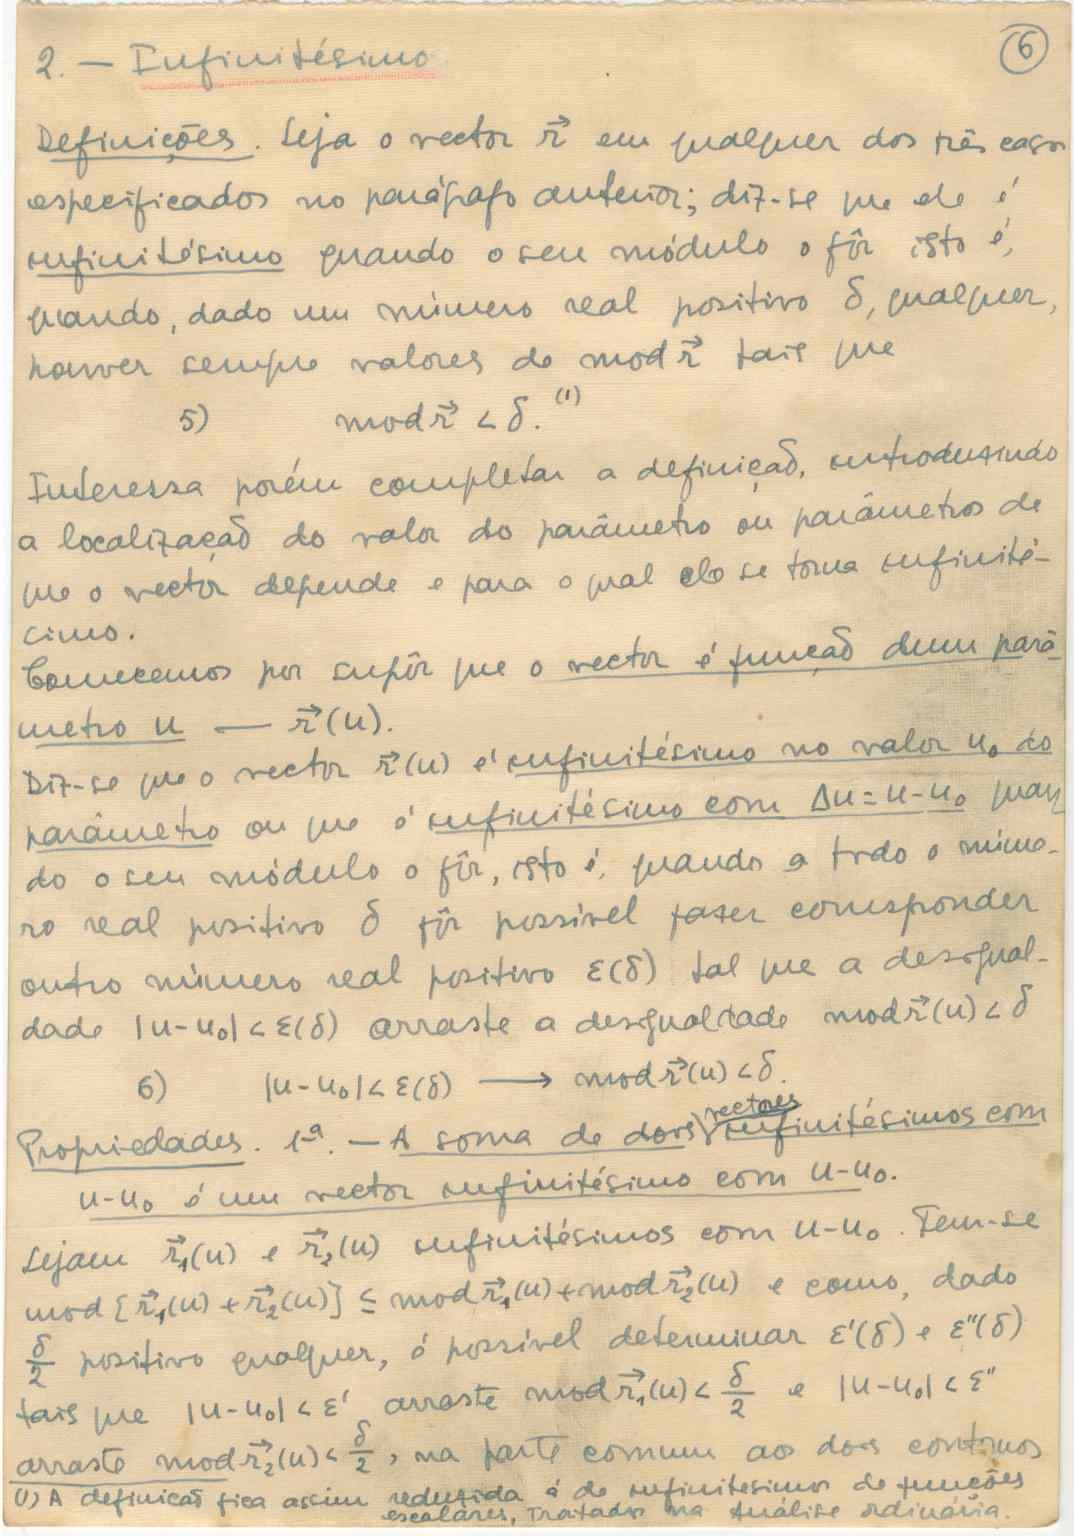 6
2. — Infinitésimo
Definições. Seja o vector r⃗ em qualquer dos três casos
especificados no parágrafo anterior; diz-se que ele é
infinitésimo quando o seu módulo o fôr isto é,
quando, dado um número real positivo δ, qualquer,
houver sempre valores de mod r⃗ tais que
5) mod r⃗ < δ. (1)
Interessa porém completar a definição, introduzindo
a localização do valor do parâmetro ou parâmetros de
que o vector depende e para o qual ele se torna infinité-
cimo.
Comecemos por supôr que o vector é função dum parâ-
metro u — r⃗(u).
Diz-se que o vector r⃗(u) é infinitésimo no valor u₀ do
parâmetro ou que é infinitésimo com Δu = u-u₀ quan
do o seu módulo o fôr, isto é, quando a todo o núme-
ro real positivo δ fôr possível fazer corresponder
outro número real positivo ε(δ) tal que a desigual-
dade |u-u₀| < ε(δ) arraste a desigualdade mod r⃗(u) < δ
6) |u-u₀| < ε(δ) ⟶ mod r⃗(u) < δ.
Propriedades. 1ª. — A soma de dois vectores infinitésimos com
u-u₀ é um vector infinitésimo com u-u₀.
Sejam r⃗₁(u) e r⃗₂(u) infinitésimos com u-u₀. Tem-se
mod [r⃗₁(u) + r⃗₂(u)] ≤ mod r⃗₁(u) + mod r⃗₂(u) e como, dado
δ/2 positivo qualquer, é possível determinar ε'(δ) e ε''(δ)
tais que |u-u₀| < ε' arraste mod r⃗₁(u) < δ/2 e |u-u₀| < ε''
arraste mod r⃗₂(u) < δ/2, na parte comum aos dois contornos
(1) A definição fica assim reduzida à de infinitesimos de funções
escalares, tratados na Análise ordinária.